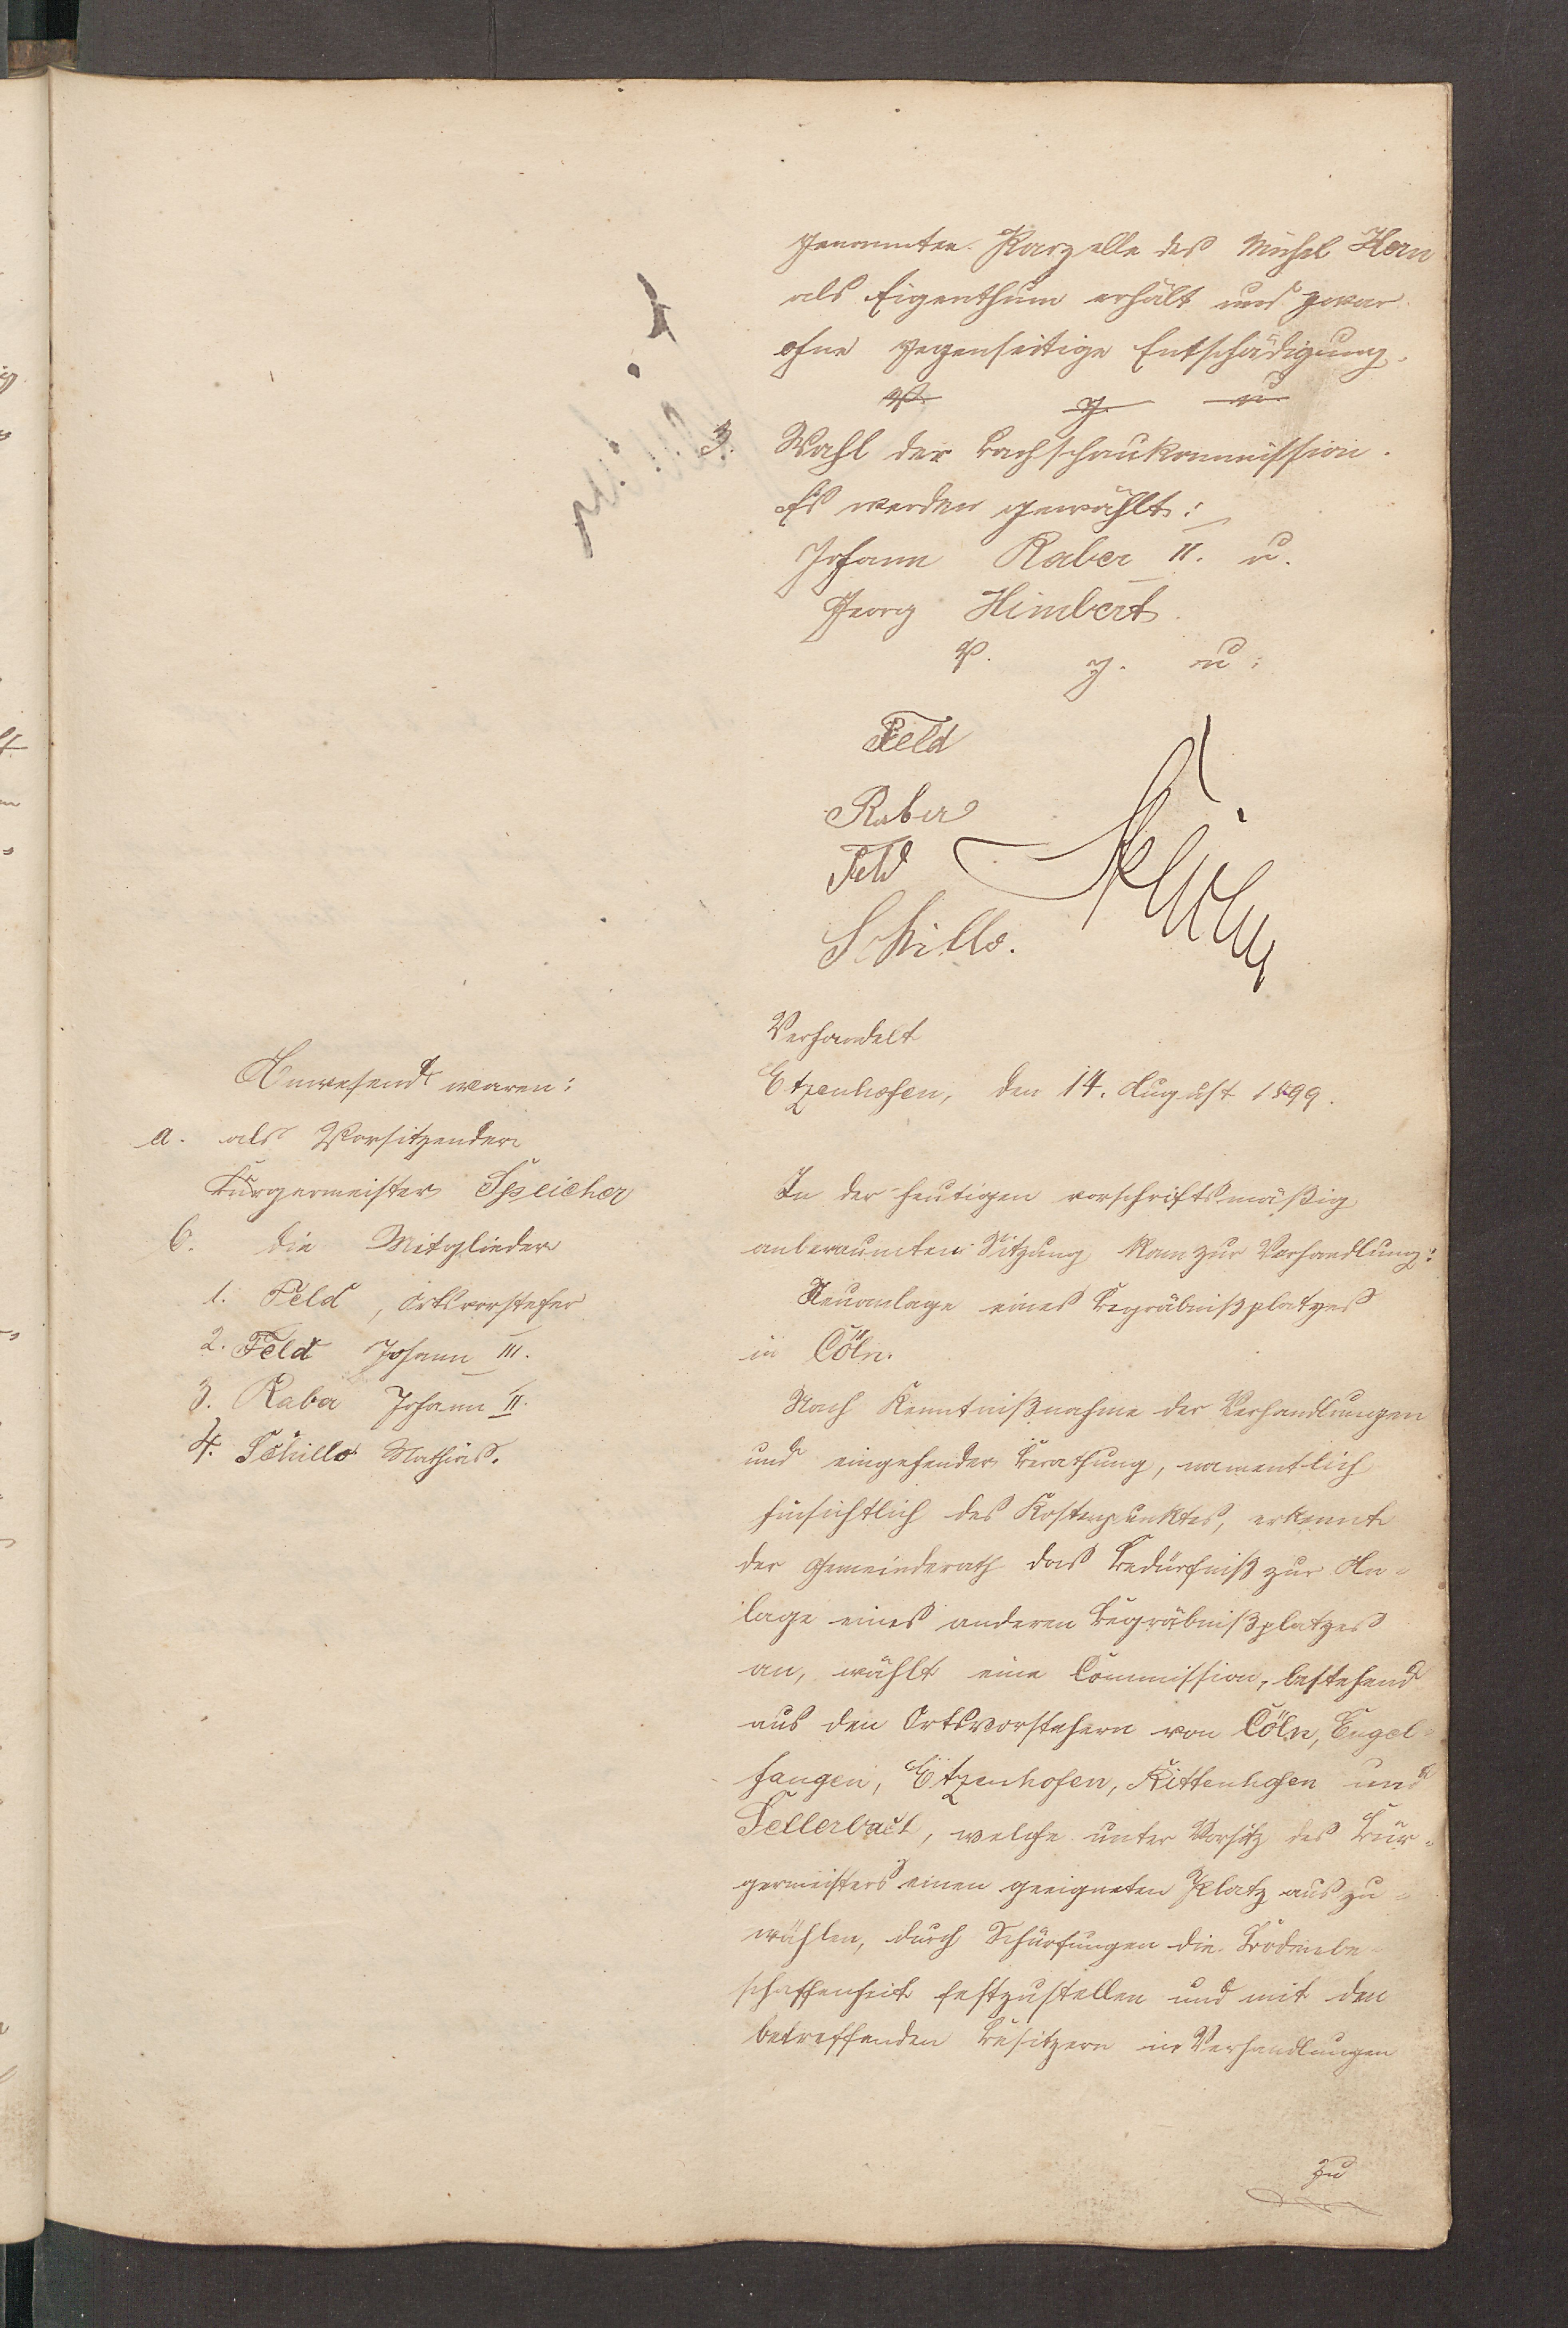 genannten Parzelle des Michel Hern
als Eigenthum erhält und zwar
ohne gegenseitige Entschädigung.
V. g. u.
3. Wahl der Bachschaukommission.
Es werden gewählt:
Johann Raber II. u.
Georg Himbert.
V. g. u.
Feld
Raber
Feld
Schillo.
Anwesend waren:
a. als Vorsitzender
Bürgermeister Speicher
b. die Mitglieder
1. Feld, Ortsvorsteher
2. Feld Johann III.
3. Raber Johann II.
4. Schillo Mathias.
Verhandelt
Etzenhofen, den 14. August 1899.
In der heutigen vorschriftsmäßig
anberaumten Sitzung kam zur Verhandlung:
Neuanlage eines Begräbnißplatzes
in Cöln.
Nach Kenntnißnahme der Verhandlungen
und eingehender Berathung, namentlich
hinsichtlich des Kostenpunktes, erkennt
der Gemeinderath das Bedürfniß zur An-
lage eines anderen Begräbnißplatzes
an, wählt eine Commission, bestehend
aus den Ortsvorstehern von Cöln, Engel-
fangen, Etzenhofen, Rittenhofen und
Sellerbach, welche unter Vorsitz des Bür-
germeisters einen geeigneten Platz auszu-
wählen, durch Schürfungen die Bodenbe-
schaffenheit festzustellen und mit den
betreffenden Besitzern in Verhandlungen
zu